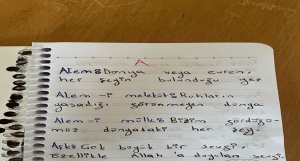 Alem: Dünya veya evren,
her şeyin bulunduğu yer
Alem-i melekût: Ruhların
yaşadığı, görünmeyen dünya
Alem-i mülk: Bizim gördüğü-
müz dünyadaki her şey
Aşk: Çok büyük bir sevgi,
özellikle Allah'a duyulan sevgi